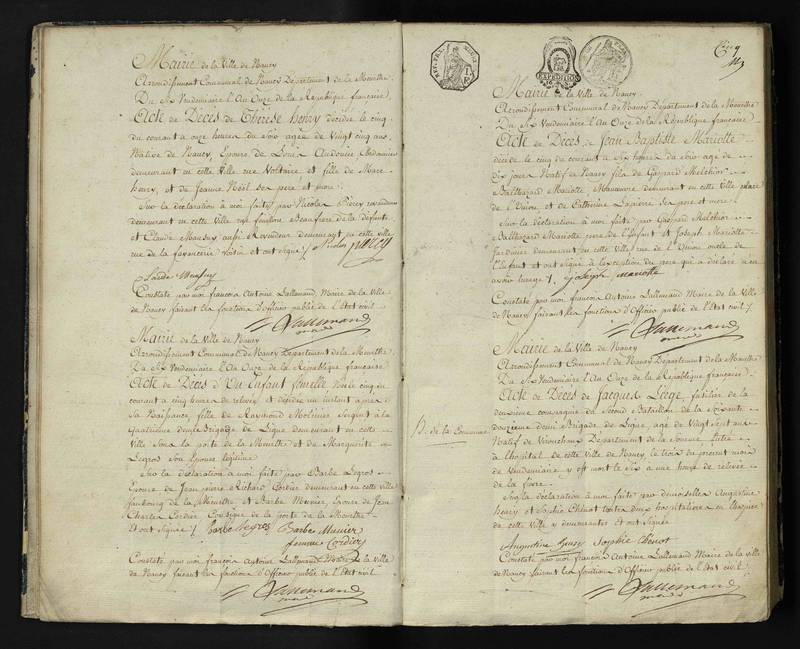 Mairie de la Ville de Nancy
Arrondissement Communal de Nancy Département de la Meurthe.
Du Six Vendemiaire l'An Onze de la République française
Acte de Décès de Thérèse henry décédée le cinq
du courant a onze heures du Soir agée de Vingt cinq ans
Native de Nancy, Epouse de Louis
demeurant en cette Ville rue Voltaire et fille de Marc
henry, et de Jeanne Noël ses pere et mere.
Sur la déclaration à moi faite par Nicolas revendeur
demeurant en cette Ville rue Beaufrere de la défunte
et Claude aussi Revendeur demeurant en cette ville
rue de la fayancerie Voisin et ont signé / Nicolas
Constaté par moi françois Antoine Lallemand, Maire de la Ville
de Nancy faisant les fonctions d'Officier public de l'Etat civil
Lallemand
maire
Mairie de la Ville de Nancy
Arrondissement Communal de Nancy Département de la Meurthe
Du Six Vendemiaire l'An Onze de la République française
Acte de Décès d'Un Enfant femelle née le cinq du
courant a cinq heures de relevée et décédée un instant après
Sa Naissance, fille de Raymond Sergent à la
Brigade de Ligne demeurant en cette
Ville Sous la porte de la Meurthe et de Marguerite
Legros Son Epouse légitime
Sur la déclaration à moi faite par Barbe Legros
Epouse de Jean pierre Richard Cordier demeurant en cette ville
fauxbourg de la Meurthe et Barbe Munier, Epouse de Jean
Charles Cordier Consigne de la porte de la Meurthe
Et ont signé / Barbe Legros Barbe Munier
femme Cordier
Constaté par moi françois Antoine Lallemand Maire de la Ville
de Nancy faisant les fonctions d'Officier public de l'Etat civil
Lallemand
maire
Cinq
EXPEDITION
Mairie de la Ville de Nancy
Arrondissement Communal de Nancy Département de la Meurthe
Du Six Vendemiaire l'An Onze de la République française
Acte de Décès de Jean Baptiste Mariotte
décédé le cinq du courant a Six heures du Soir agé de
dix jours Natif de Nancy fils de Gaspard Melchior
Balthazard Mariotte Manœuvre demeurant en cette Ville place
de l'Union, et de Catherine Lapierre Ses pere et mere.
Sur la déclaration à moi faite par Gaspard Melchior
Balthazard Mariotte pere de l'Enfant et Joseph Mariotte
Jardinier demeurant en cette Ville rue de l'Union oncle de
l'Enfant et ont signé à l'exception du pere qui a déclaré n'en
avoir l'usage / joseph mariotte
Constaté par moi françois Antoine Lallemand Maire de la Ville
de Nancy faisant les fonctions d'Officier public de l'Etat civil /
Lallemand
maire
Mairie de la Ville de Nancy
Arrondissement Communal de Nancy Département de la Meurthe
Du Six Vendemiaire l'An Onze de la République française
Acte de Décès de Jacques Liége, fusilier de la
deuxieme compagnie du Second Bataillon de la Soixante
B. de la Commune
douzieme demi Brigade de Ligne, agé de Vingt Sept ans
Natif de Département de la Somme Entré
à l'hopital de cette Ville de Nancy le trois du present mois
de Vendemiaire y est mort le Six a une heure de relevée
de la fievre.
Sur la déclaration à moi faite par demoiselles Augustine
henry et Sophie Chénot toutes deux hospitalieres en l'hopital
de cette Ville y demeurantes et ont signées
Augustine henry Sophie Chénot
Constaté par moi françois Antoine Lallemand Maire de la Ville
de Nancy faisant les fonctions d'Officier public de l'Etat civil
Lallemand
maire